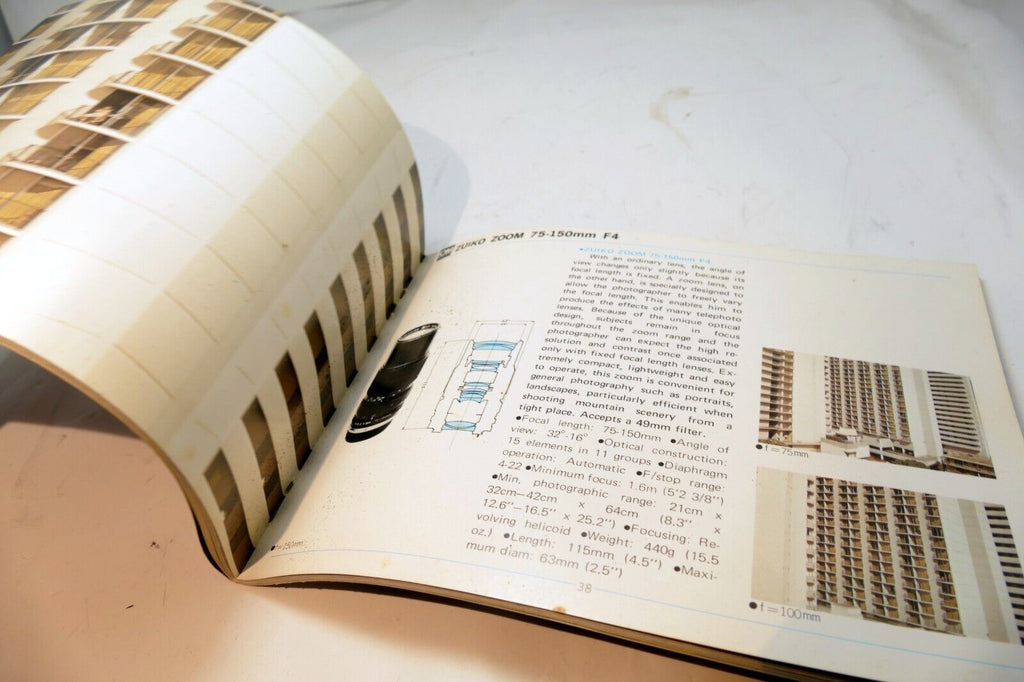 ZUIKO ZOOM 75-150mm F4
•ZUIKO ZOOM 75-150mm F4
With an ordinary lens, the angle of
view changes only slightly because its
focal length is fixed. A room lens, on
the other hand, is specially designed to
allow the photographer to freely vary
the focal length. This enables him to
produce the effects of many telephoto
lenses. Because of the unique optical
design, subjects remain in focus
throughout the zoom range and the
photographer can expect the high re-
solution and contrast once associated
only with fixed focal length lenses. Ex-
tremely compact, lightweight and easy
to operate, this zoom is convenient for
general photography such as portraits,
landscapes, particularly efficient when
shooting mountain scenery from a
tight place. Accepts a 49mm filter.
●Focal length: 75-150mm ●Angle of
view: 32°-16° ●Optical construction:
15 elements in 11 groups ●Diaphragm
operation: Automatic ●F/stop range:
4-22 ●Minimum focus: 1.6m (5'2 3/8'')
●Min. photographic range: 21cm ×
32cm—42cm × 64cm (8.3'' ×
12.6''—16.5'' × 25.2'') ●Focusing: Re-
volving helicoid ●Weight: 440g (15.5
oz.) ●Length: 115mm (4.5'') ●Maxi-
mum diam: 63mm (2.5'')
●f=150mm
38
●f=75mm
●f=100mm